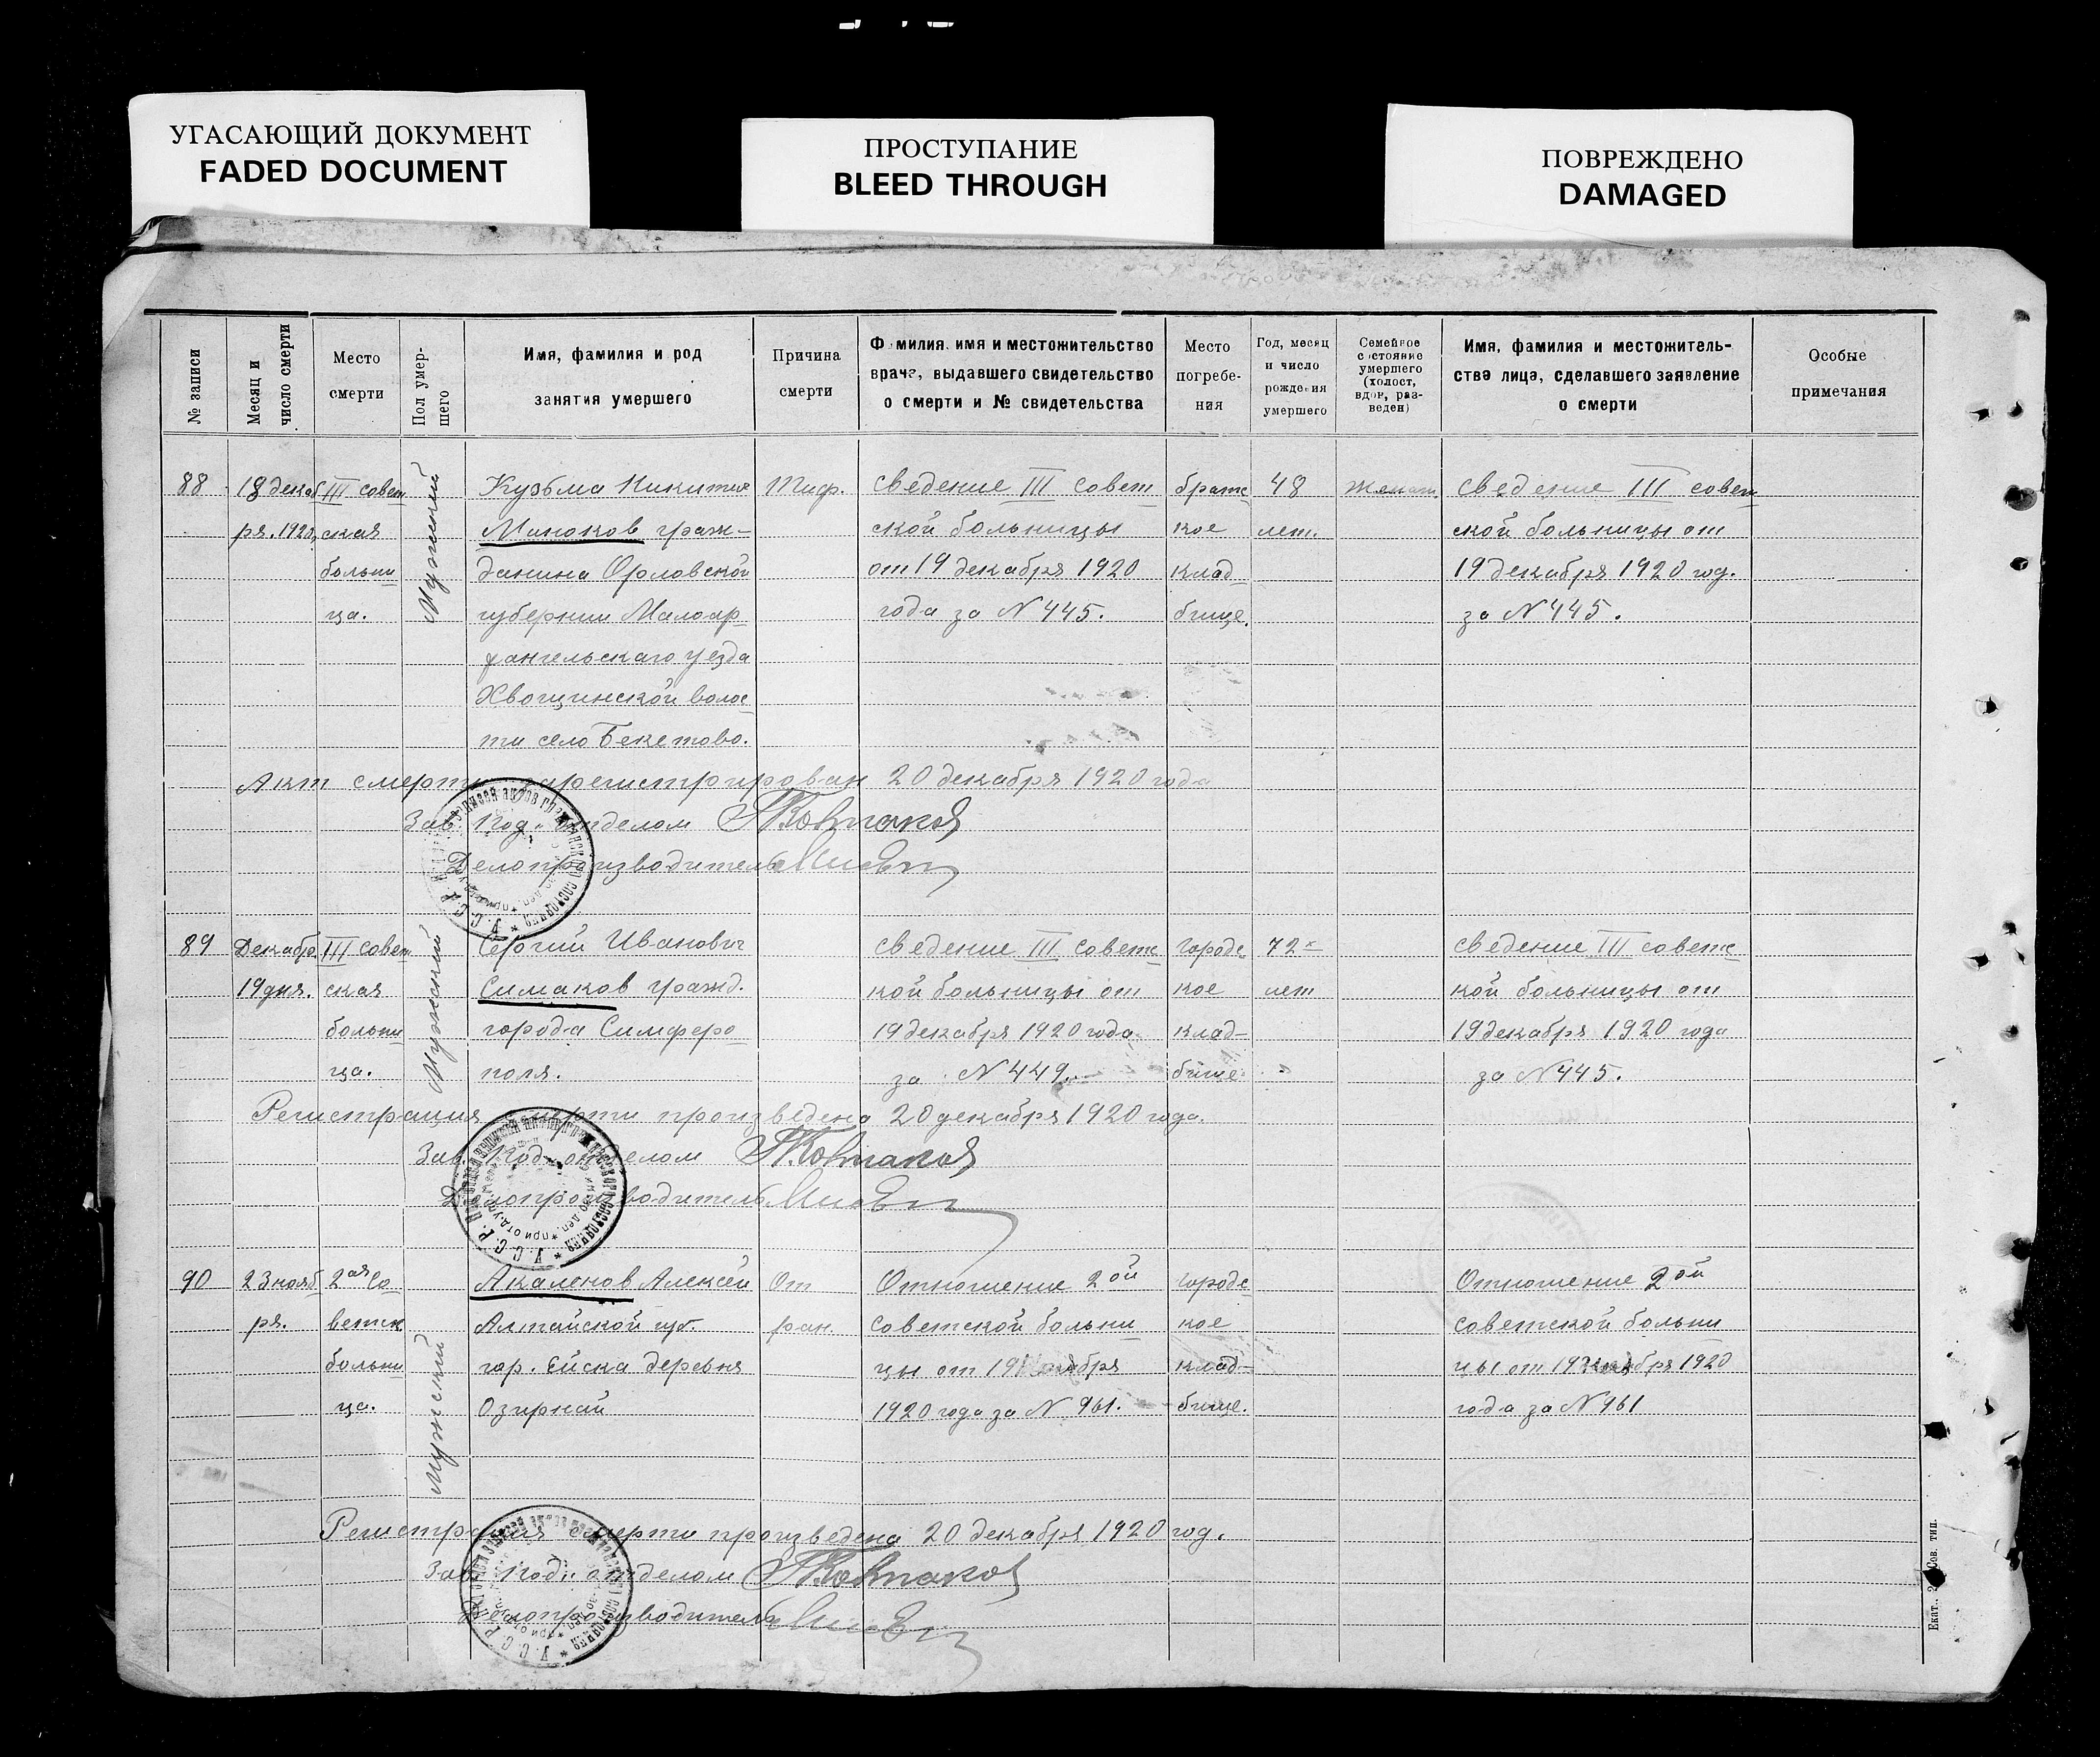 УГАСАЮЩИЙ ДОКУМЕНТ
FADED DOCUMENT
ПРОСТУПАНИЕ
BLEED THROUGH
ПОВРЕЖДЕНО
DAMAGED
№ записи
Месяц и
число смерти
Место
смерти
Пол умер-
шего
Имя, фамилия и род
занятия умершего
Причина
смерти
Фамилия, имя и местожительство
врача, выдавшего свидетельство
о смерти и № свидетельства
Место
погребе-
ния
Год, месяц
и число
рождения
умершего
Семейное
состояние
умершего
(холост,
вдов, раз-
веден)
Имя, фамилия и местожитель-
ства лица, сделавшего заявление
о смерти
Особые
примечания
88
18 декаб
ря. 1920
III совет
ская
больни
ца.
Мужский
Кузьма Никитич
Миноков граж-
данина Орловской
губернии Малоар
хангельскаго уезда
Хвощинской волос
ти село Бекетово.
Тиф.
сведение III совет
ской больницы
от 19 декабря 1920
года за N 445.
братс
кое
клад
бище.
48
лет.
Женат
сведение III совет
ской больницы от
19 декабря 1920 год.
за N 445.
Акт смерти зарегистрирован 20 декабря 1920 года
Зав. Код. отделом
Делопроизводитель
89
Декабр.
19 дня.
III совет
ская
больни
ца.
Мужский
Сергий Иванович
Симаков гражд.
города Симферо
поля.
сведение III советс
кой больницы от
19 декабря 1920 года
за N 449.
городс
кое
клад-
бище
72
лет
сведение III советс
кой больницы от
19 декабря 1920 года
за N 445.
Регистрация смерти произведена 20 декабря 1920 года.
Зав. Код. отделом
Делопроизводитель
90
23 нояб
ря.
2ая Со
ветск
больни
ца.
Мужский
Акаленов Алексей
Алтайской губ.
гор. Ейска деревня
Озирний
От
ран.
Отношение 2ой
советской больни
цы от 19
1920 года за N 961.
городс
кое
клад-
бище.
Отношение 2ой
советской больни
цы от 19 декабря 1920
года за N 961
Регистрация смерти произведена 20 декабря 1920 год.
Зав. Код. отделом
Делопроизводитель
Екат., 2 Сов. тип.